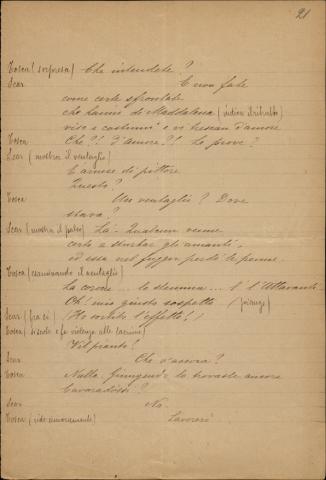 21
Tosca (sorpresa) Che intendete?
Scar. E non fate
come certe sfrontate
che hanno di Maddalena (indica il ritratto)
viso e costumi e vi trescan d'amore
Tosca Che?! d'amore?! Le prove?
Scar (mostra il ventaglio)
È arnese di pittore
Questo?
Tosca Un ventaglio? Dove
stava?
Scar (mostra il palco) Là. Qualcun venne
certo a sturbar gli amanti,
ed essa nel fuggir perdé le penne.
Tosca (esaminando il ventaglio)
La corona... lo stemma... È l'Attavanti
Oh! mio giusto sospetto (piange)
Scar (fra sé) (Ho sortito l'effetto!)
Tosca (si scuote e fa violenza alle lacrime)
Vil pianto!
Scar. Che v'accora?
Tosca Nulla. Giungendo lo trovaste ancora
Cavaradossi?
Scar No.
Tosca (ride amaramente) Lavorerò